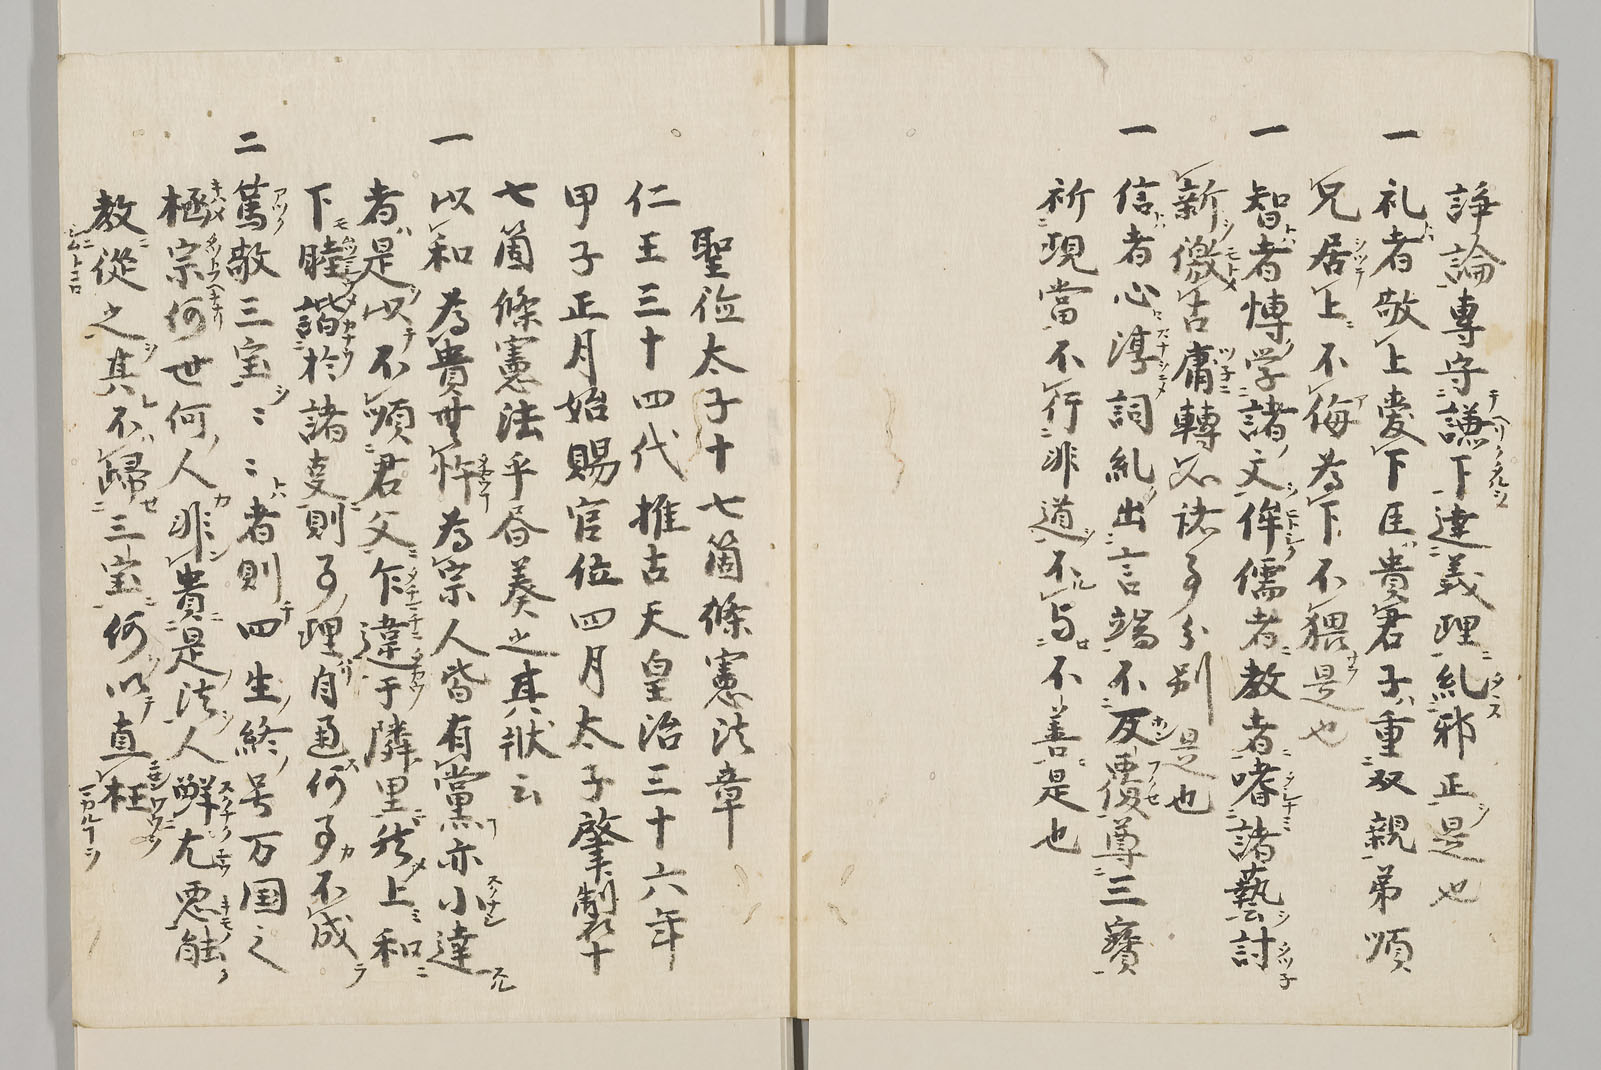 諍論專守謙下達義理糺邪正是也
一礼者敬上愛下臣貴君子重双親弟順
兄居上不侮為下不猥是也
一智者慱学諸文侔儒者教者嗜諸藝討
新儌古庸轉以諸事分別是也
一信者心淳詞糺出言端不反覆尊三寳
祈現當不行非道不与不善是也
聖徳太子十七箇條憲法章
仁王三十四代推古天皇治三十六年
甲子正月始賜官位四月太子肇製十
七箇條憲法乎昏奏之其状云
一以和為貴無忤為宗人皆有黨亦小達
者是以不順君父乍違于隣里然上和
下睦諧於諸事則事理自通何事不成
二篤敬三宝〻〻者則四生終号万国之
極宗何世何人非貴是法人鮮尤悪能
教從之其不歸三宝何以直枉